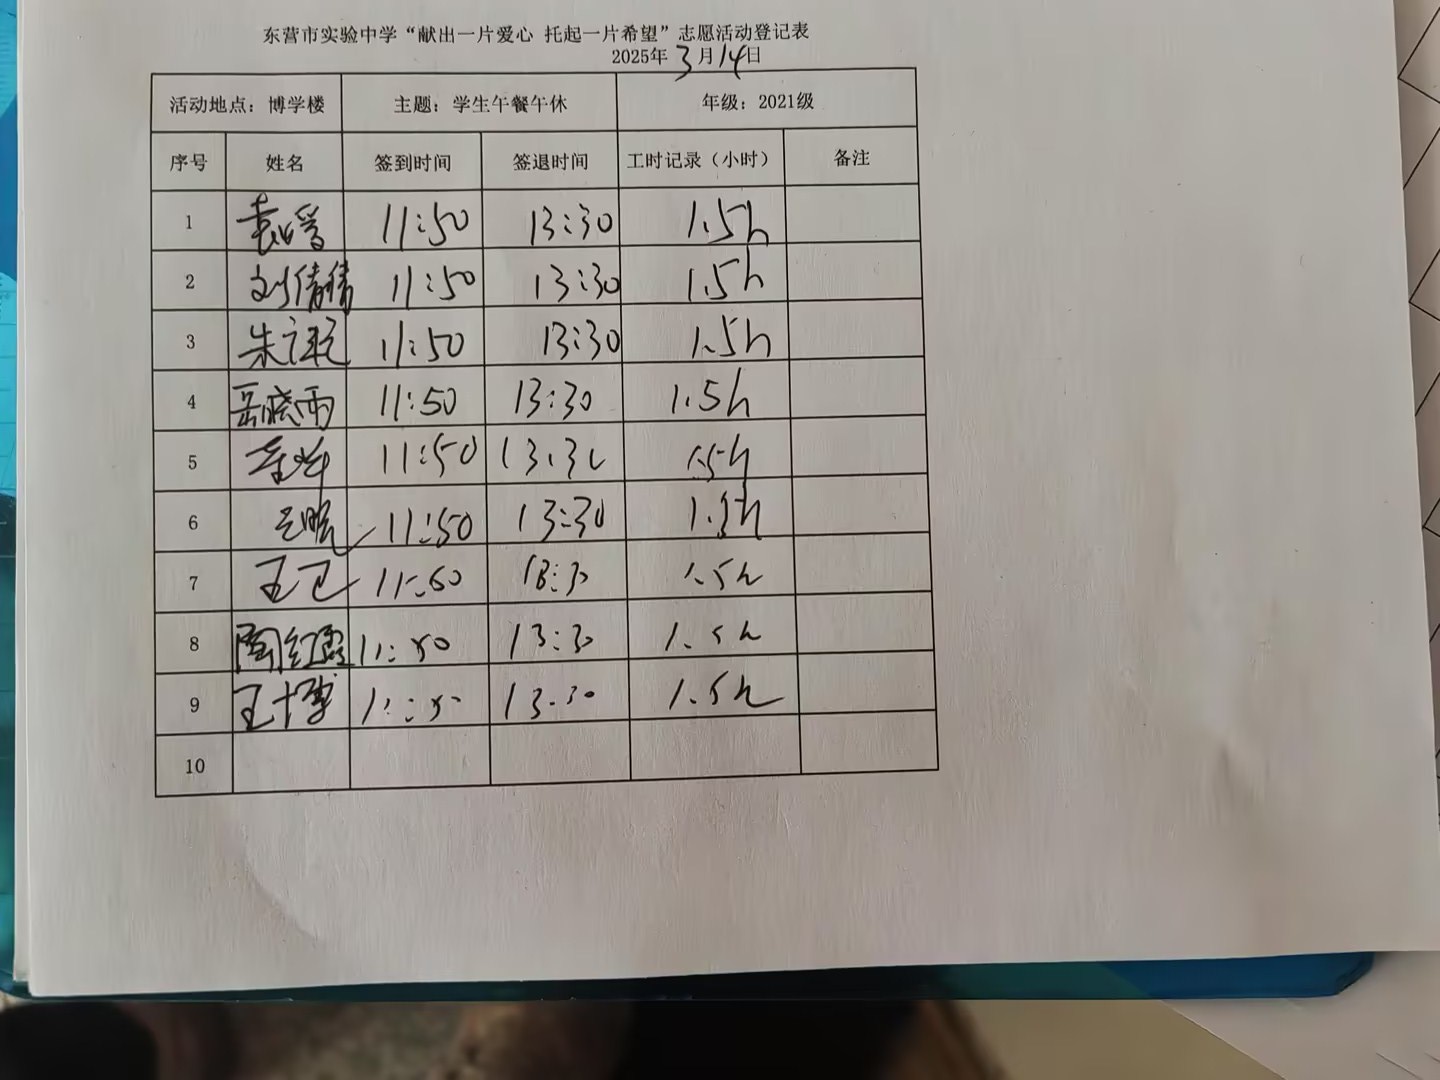 东营市实验中学“献出一片爱心 托起一片希望”志愿活动登记表
2025年3月14日
活动地点：博学楼 主题：学生午餐午休 年级：2021级
序号 姓名 签到时间 签退时间 工时记录（小时） 备注
1 11:50 13:30 1.5h
2 刘倩倩 11:50 13:30 1.5h
3 11:50 13:30 1.5h
4 岳晓雨 11:50 13:30 1.5h
5 11:50 13:30 1.5h
6 11:50 13:30 1.5h
7 王卫 11:50 13:30 1.5h
8 陶红霞 11:50 13:30 1.5h
9 王十博 11:50 13:30 1.5h
10